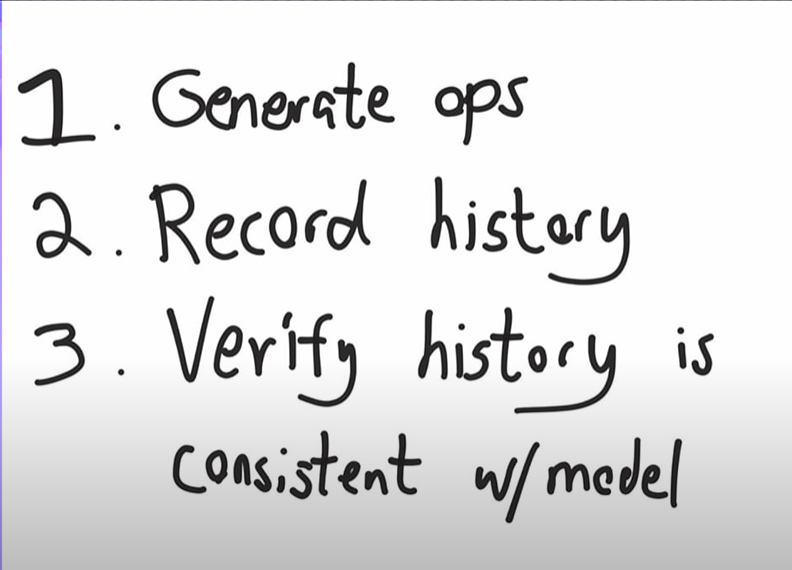 1. Generate ops
2. Record history
3. Verify history is
consistent w/model